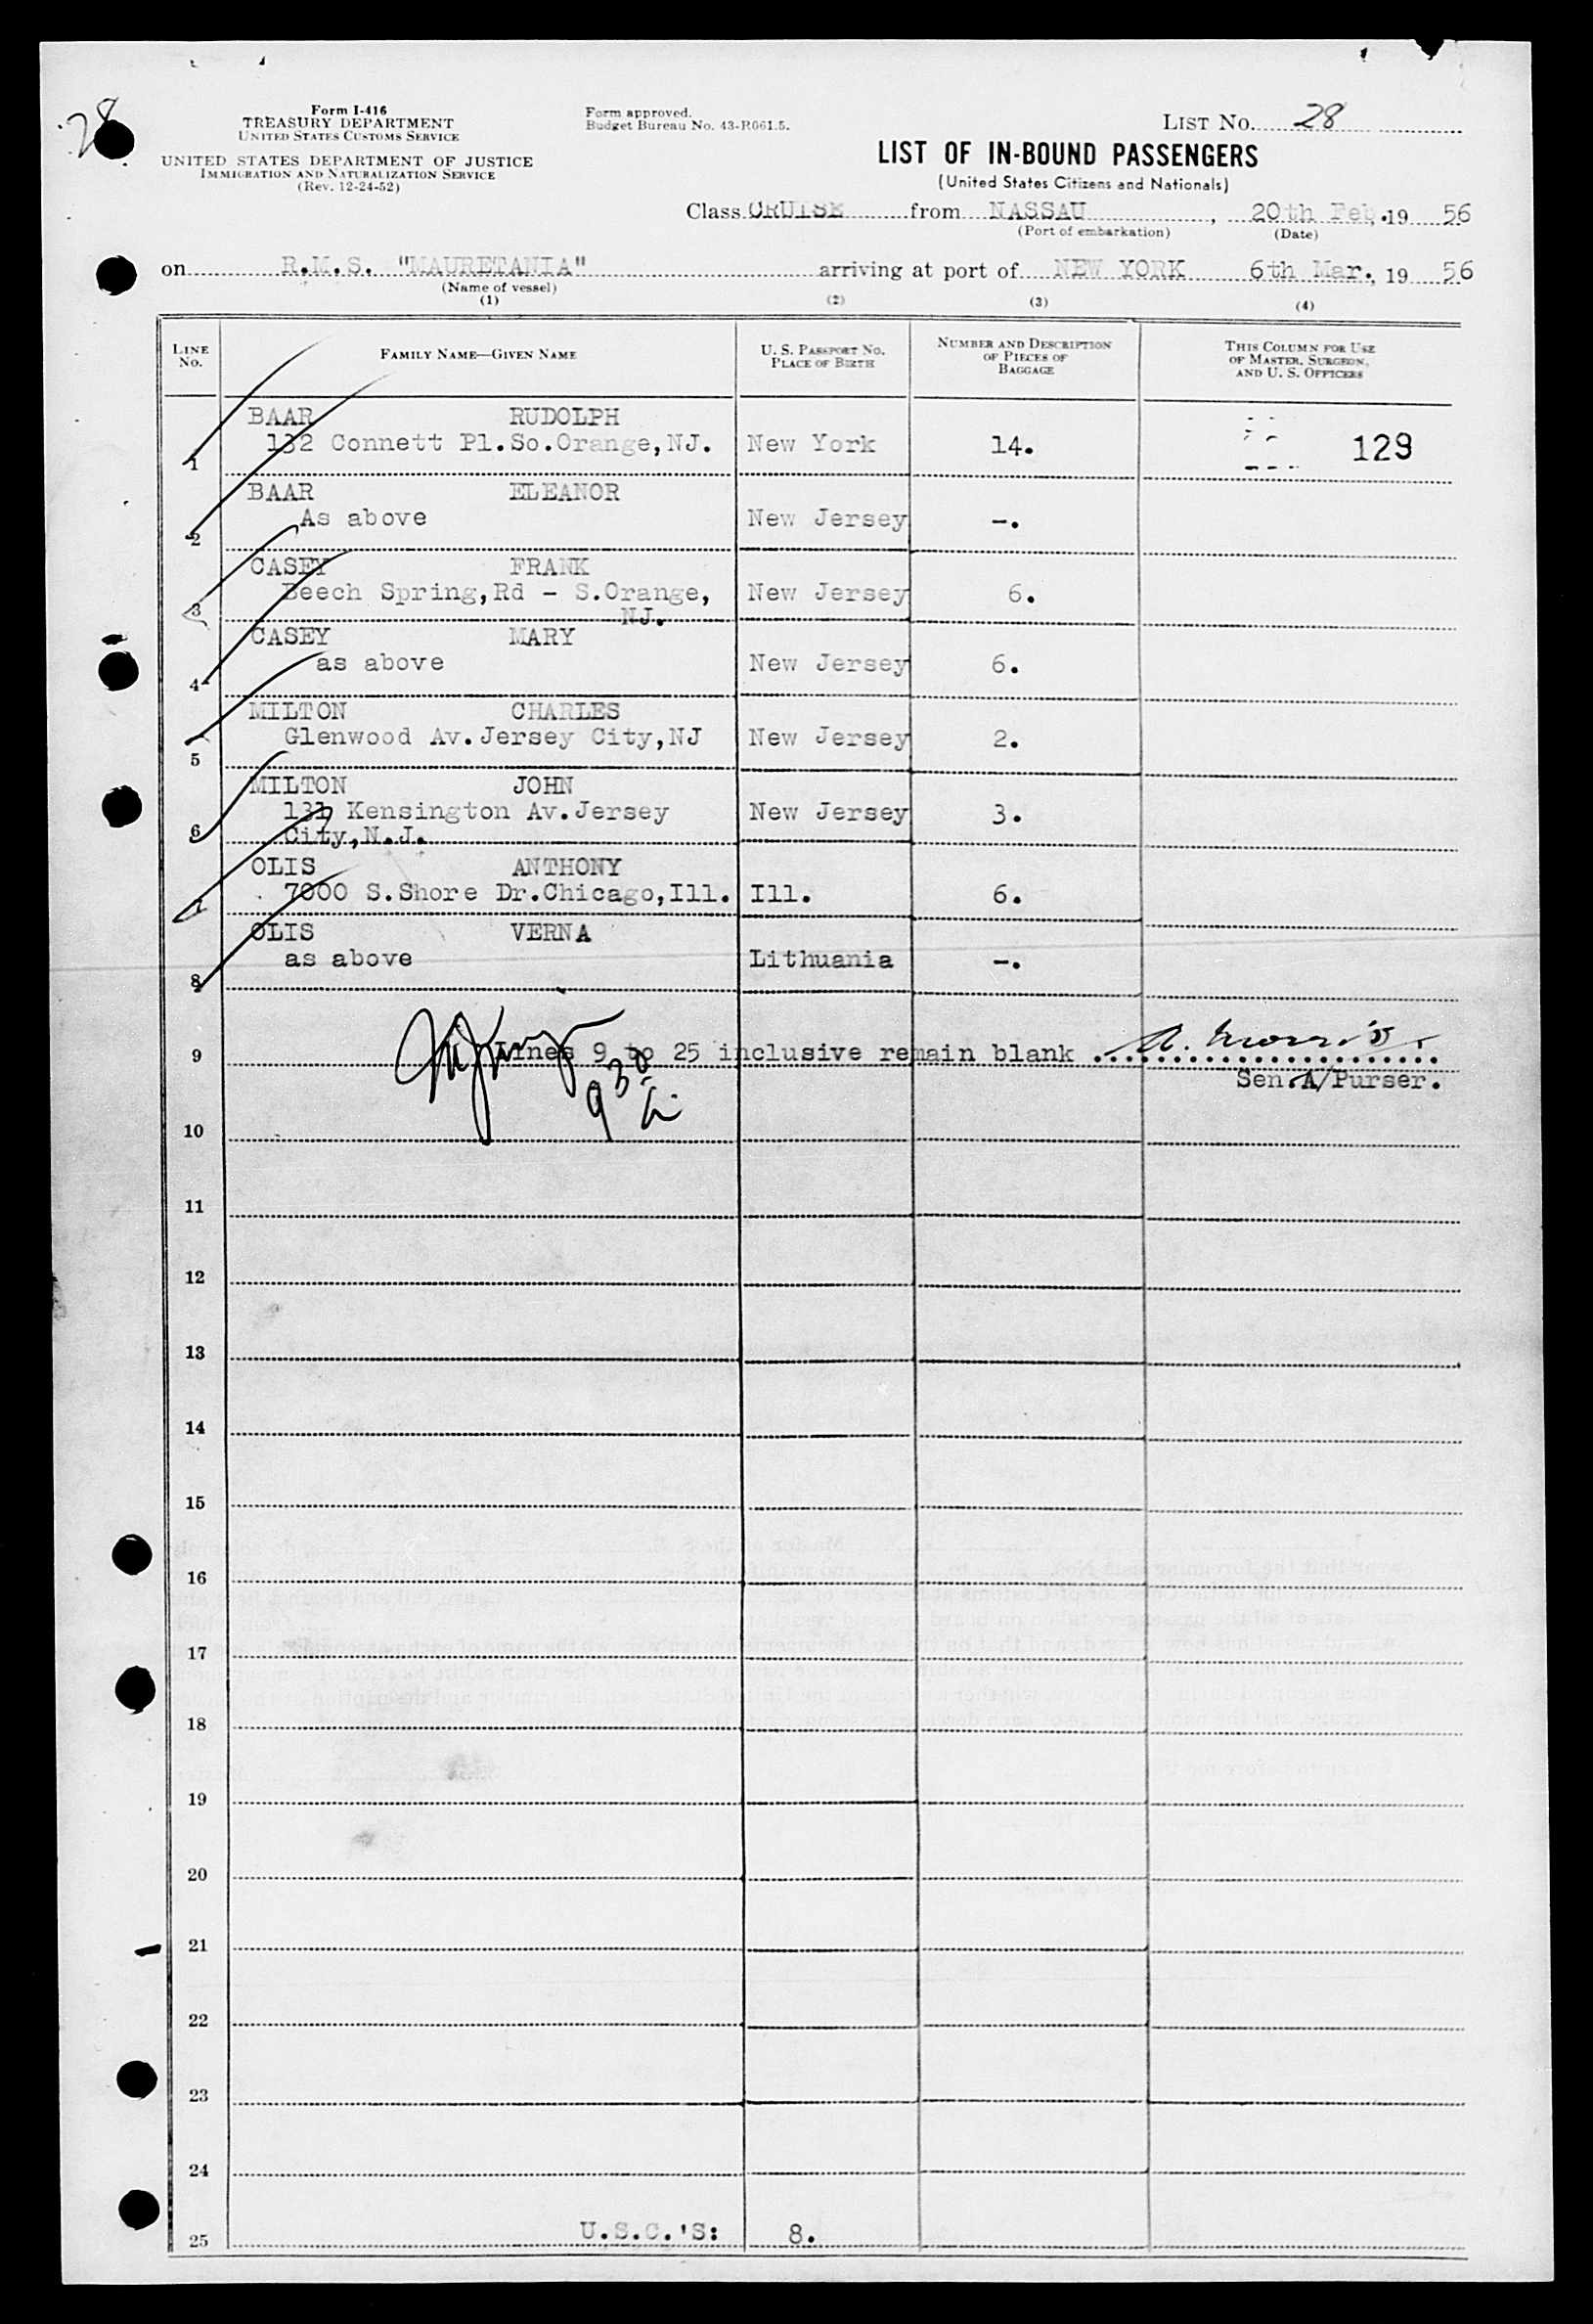 28
Form I-416
TREASURY DEPARTMENT
UNITED STATES CUSTOMS SERVICE
UNITED STATES DEPARTMENT OF JUSTICE
IMMIGRATION AND NATURALIZATION SERVICE
(Rev. 12-24-52)
Form approved.
Budget Bureau No. 43-R061.5.
LIST No. 28
LIST OF IN-BOUND PASSENGERS
(United States Citizens and Nationals)
Class CRUISE from NASSAU, 20th Feb, 19 56
(Port of embarkation) (Date)
on R.M.S. "MAURETANIA" arriving at port of NEW YORK 6th Mar., 19 56
(Name of vessel)
(1) (2) (3) (4)
LINE No. FAMILY NAME—GIVEN NAME U. S. PASSPORT No. PLACE OF BIRTH NUMBER AND DESCRIPTION OF PIECES OF BAGGAGE THIS COLUMN FOR USE OF MASTER, SURGEON, AND U. S. OFFICERS
BAAR RUDOLPH
1 132 Connett Pl.So.Orange,NJ. New York 14. 129
BAAR ELEANOR
2 As above New Jersey -.
CASEY FRANK
3 Beech Spring,Rd - S.Orange, NJ. New Jersey 6.
CASEY MARY
4 as above New Jersey 6.
MILTON CHARLES
5 Glenwood Av.Jersey City,NJ New Jersey 2.
MILTON JOHN
6 131 Kensington Av.Jersey City,N.J. New Jersey 3.
OLIS ANTHONY
7 7000 S.Shore Dr.Chicago,Ill. Ill. 6.
OLIS VERNA
8 as above Lithuania -.
9 Lines 9 to 25 inclusive remain blank A. Morris.
Sen.A/Purser.
930
10
11
12
13
14
15
16
17
18
19
20
21
22
23
24
25 U.S.C.'S: 8.